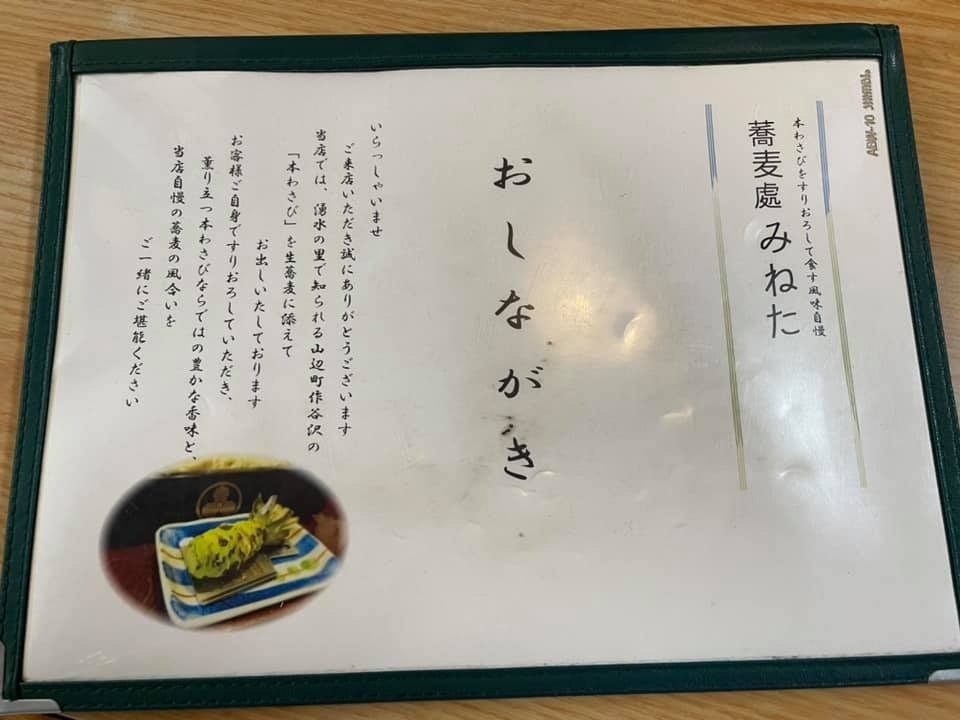 本わさびをすりおろして食す風味自慢
蕎麦處 みねた
おしながき
いらっしゃいませ
ご来店いただき誠にありがとうございます
当店では、湧水の里で知られる山辺町作谷沢の
「本わさび」を生蕎麦に添えて
お出しいたしております
お客様ご自身ですりおろしていただき、
薫り立つ本わさびならではの豊かな香味と、
当店自慢の蕎麦の風合いを
ご一緒にご堪能ください